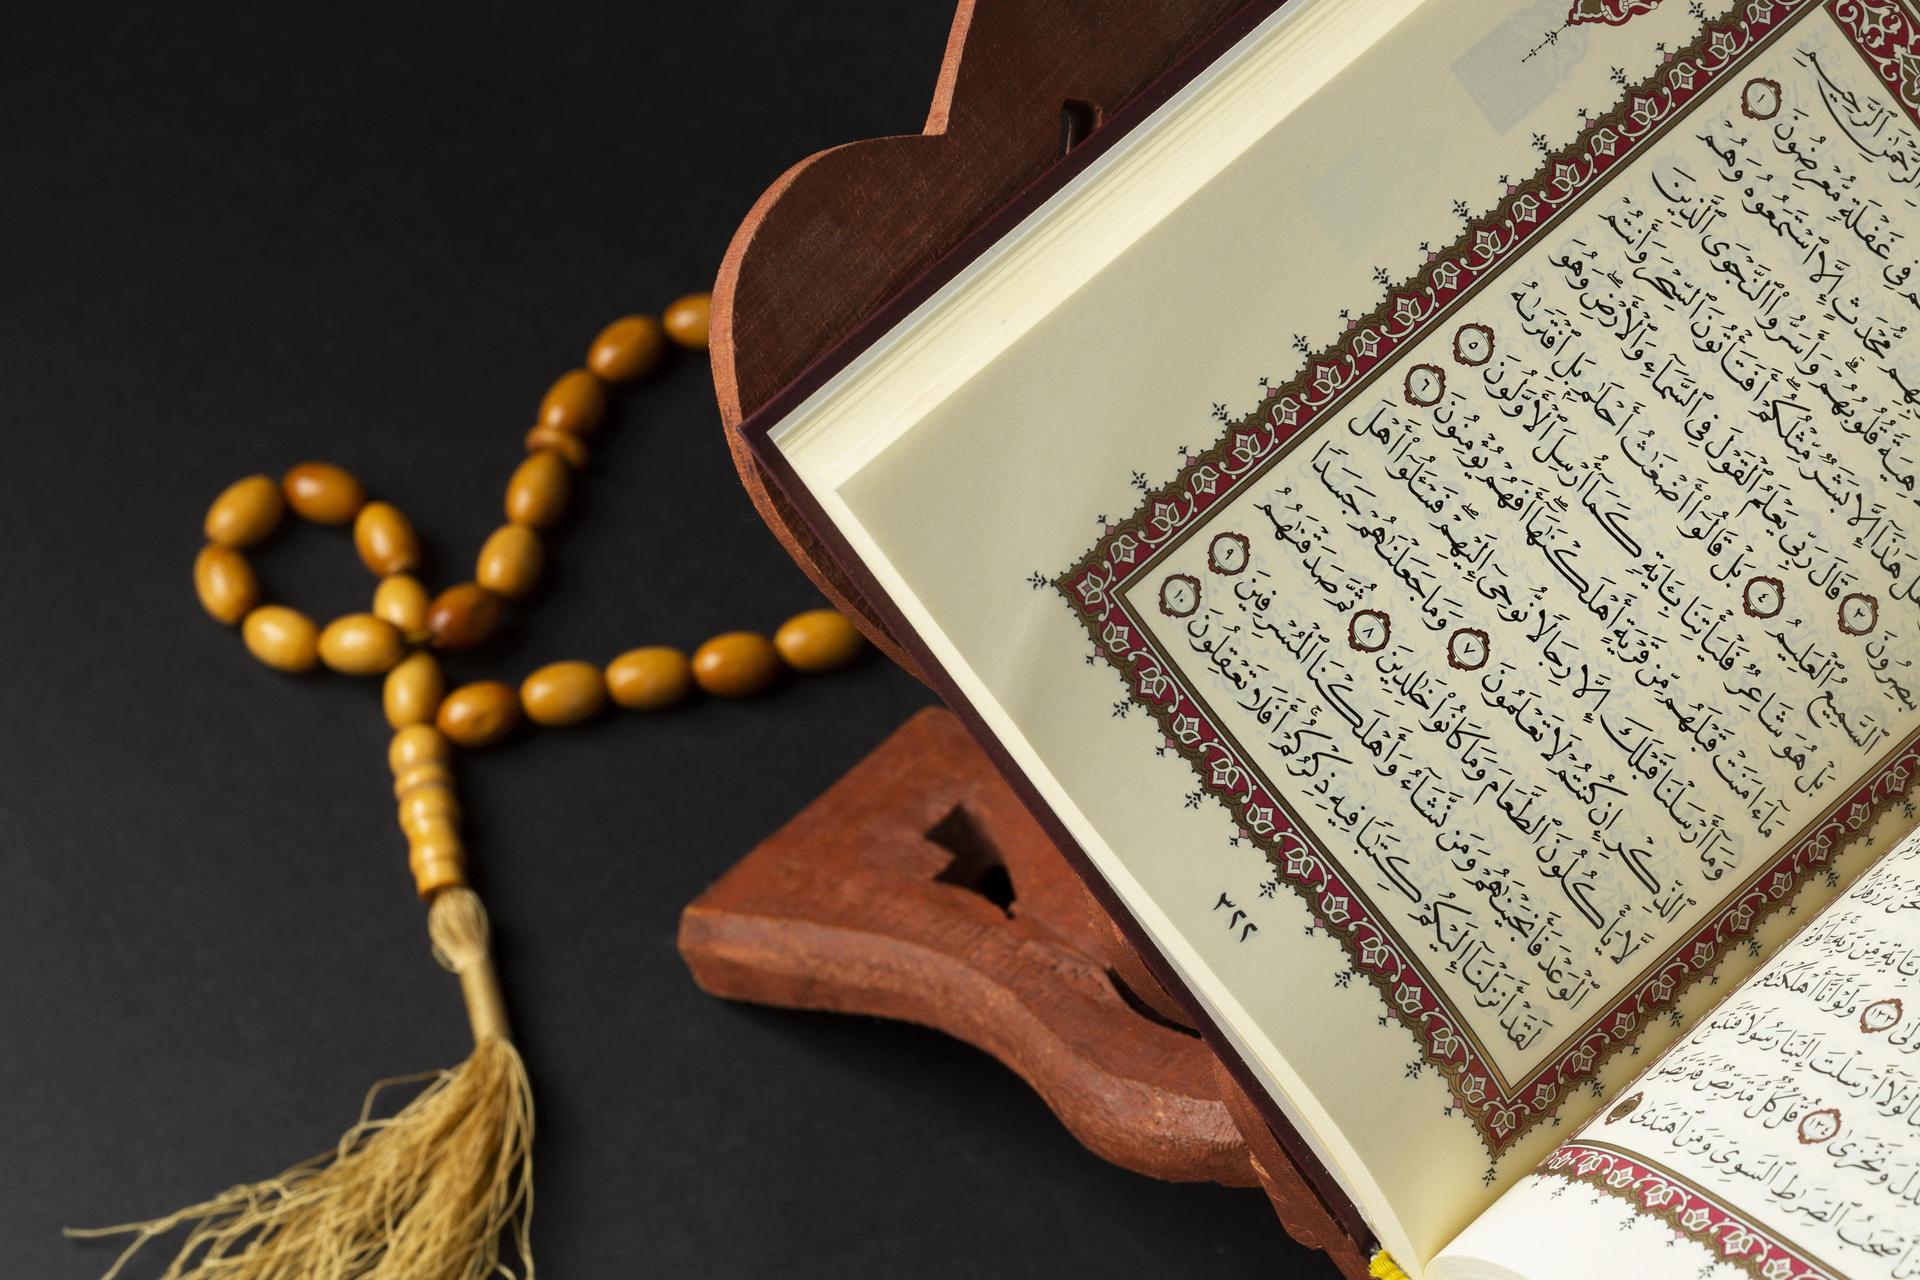 ٱلرَّحْمَٰنِ ٱلرَّحِيمِ
فِى غَفْلَةٍ مُّعْرِضُونَ ١
مُّحْدَثٍ إِلَّا ٱسْتَمَعُوهُ وَهُمْ
لَاهِيَةً قُلُوبُهُمْ وَأَسَرُّوا۟ ٱلنَّجْوَى ٱلَّذِينَ
هَلْ هَٰذَآ إِلَّا بَشَرٌ مِّثْلُكُمْ أَفَتَأْتُونَ ٱلسِّحْرَ وَأَنتُمْ
تُبْصِرُونَ ٣ قَالَ رَبِّى يَعْلَمُ ٱلْقَوْلَ فِى ٱلسَّمَآءِ وَٱلْأَرْضِ وَهُوَ
ٱلسَّمِيعُ ٱلْعَلِيمُ ٤ بَلْ قَالُوٓا۟ أَضْغَٰثُ أَحْلَٰمٍۭ بَلِ ٱفْتَرَىٰهُ
بَلْ هُوَ شَاعِرٌ فَلْيَأْتِنَا بِـَٔايَةٍ كَمَآ أُرْسِلَ ٱلْأَوَّلُونَ ٥
مَآ ءَامَنَتْ قَبْلَهُم مِّن قَرْيَةٍ أَهْلَكْنَٰهَآ أَفَهُمْ يُؤْمِنُونَ ٦
وَمَآ أَرْسَلْنَا قَبْلَكَ إِلَّا رِجَالًا نُّوحِىٓ إِلَيْهِمْ فَسْـَٔلُوٓا۟ أَهْلَ
ٱلذِّكْرِ إِن كُنتُمْ لَا تَعْلَمُونَ ٧ وَمَا جَعَلْنَٰهُمْ جَسَدًا
لَّا يَأْكُلُونَ ٱلطَّعَامَ وَمَا كَانُوا۟ خَٰلِدِينَ ٨ ثُمَّ صَدَقْنَٰهُمُ
ٱلْوَعْدَ فَأَنجَيْنَٰهُمْ وَمَن نَّشَآءُ وَأَهْلَكْنَا ٱلْمُسْرِفِينَ ٩
لَقَدْ أَنزَلْنَآ إِلَيْكُمْ كِتَٰبًا فِيهِ ذِكْرُكُمْ أَفَلَا تَعْقِلُونَ ١٠
٣٢٢
بِـَٔايَةٍ مِّن رَّبِّهِۦٓ أَوَلَمْ
١٣٣ وَلَوْ أَنَّآ أَهْلَكْنَٰهُم
لَوْلَآ أَرْسَلْتَ إِلَيْنَا رَسُولًا فَنَتَّبِعَ
وَنَخْزَىٰ ١٣٤ قُلْ كُلٌّ مُّتَرَبِّصٌ فَتَرَبَّصُوا۟
أَصْحَٰبُ ٱلصِّرَٰطِ ٱلسَّوِىِّ وَمَنِ ٱهْتَدَىٰ